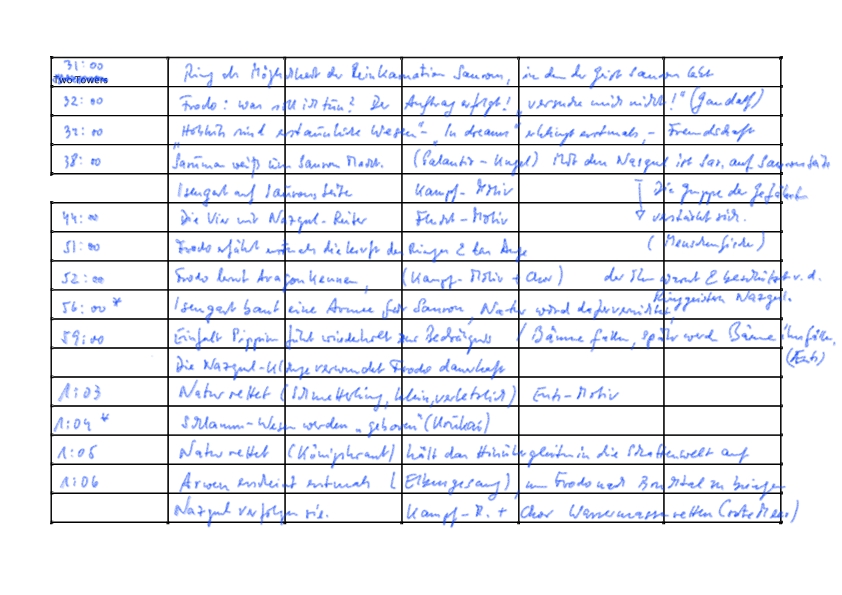 31:00 Ring der Möglichkeit der Reinkarnation Saurons, in dem der Geist Saurons lebt
Two Towers
32:00 Frodo: was soll ich tun? Der Auftrag erfolgt! „versuche mich nicht!" (Gandalf)
32:00 „Hobbits sind erstaunliche Wesen" - „In dreams" erklingt erstmals, - Freundschaft
38:00 Saruman weiß um Saurons Macht. (Palantir-Kugel) Mit den Nazgul ist Sar. auf Saurons Seite
Isengart auf Saurons Seite Kampf-Motiv Die Gruppe der Gefährten
44:00 Die Vier mit Nazgul-Reiter Flucht-Motiv verstärkt sich.
51:00 Frodo erfährt erstmals die Kraft des Ringes & das Auge (Menschenfische)
52:00 Frodo lernt Aragon kennen, (Kampf-Motiv + Chor) der ihn warnt & beschützt v. d.
Ringgeistern Nazgul.
56:00 * Isengart baut eine Armee für Sauron, Natur wird dafür vernichtet
59:00 Einfalt Pippins führt wiederholt zur Bedrängnis / Bäume fallen, später werd Bäume ihn fällen,
(Ents)
Die Nazgul-Klinge verwundet Frodo dauerhaft
1:03 Natur rettet (Schmetterling, klein, verletzlich) Ents-Motiv
1:04 * Schlamm-Wesen werden „geboren" (Urukai)
1:05 Natur rettet (Königskraut) hält das Hinübergleiten in die Schattenwelt auf
1:06 Arwen erscheint erstmals (Elbengesang), um Frodo nach Bruchtal zu bringen
Nazgul verfolgen sie. Kampf-M. + Chor Wassermassen retten